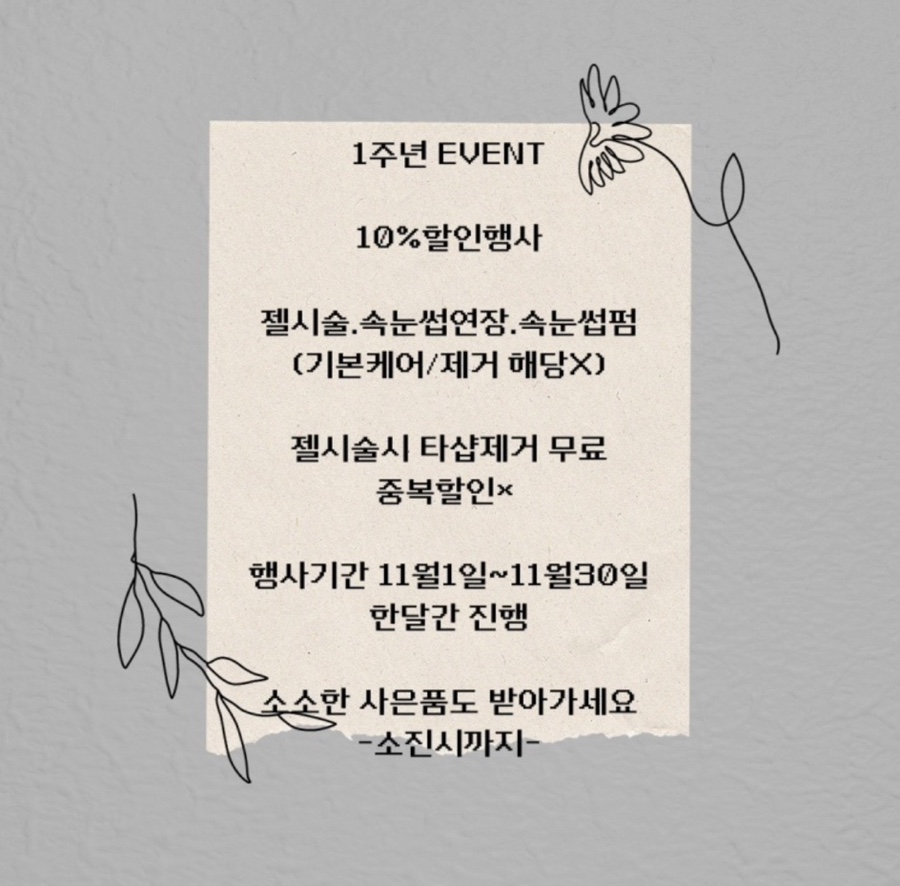 1주년 EVENT
10%할인행사
젤시술.속눈썹연장.속눈썹펌
(기본케어/제거 해당X)
젤시술시 타샵제거 무료
중복할인×
행사기간 11월1일~11월30일
한달간 진행
소소한 사은품도 받아가세요
-소진시까지-